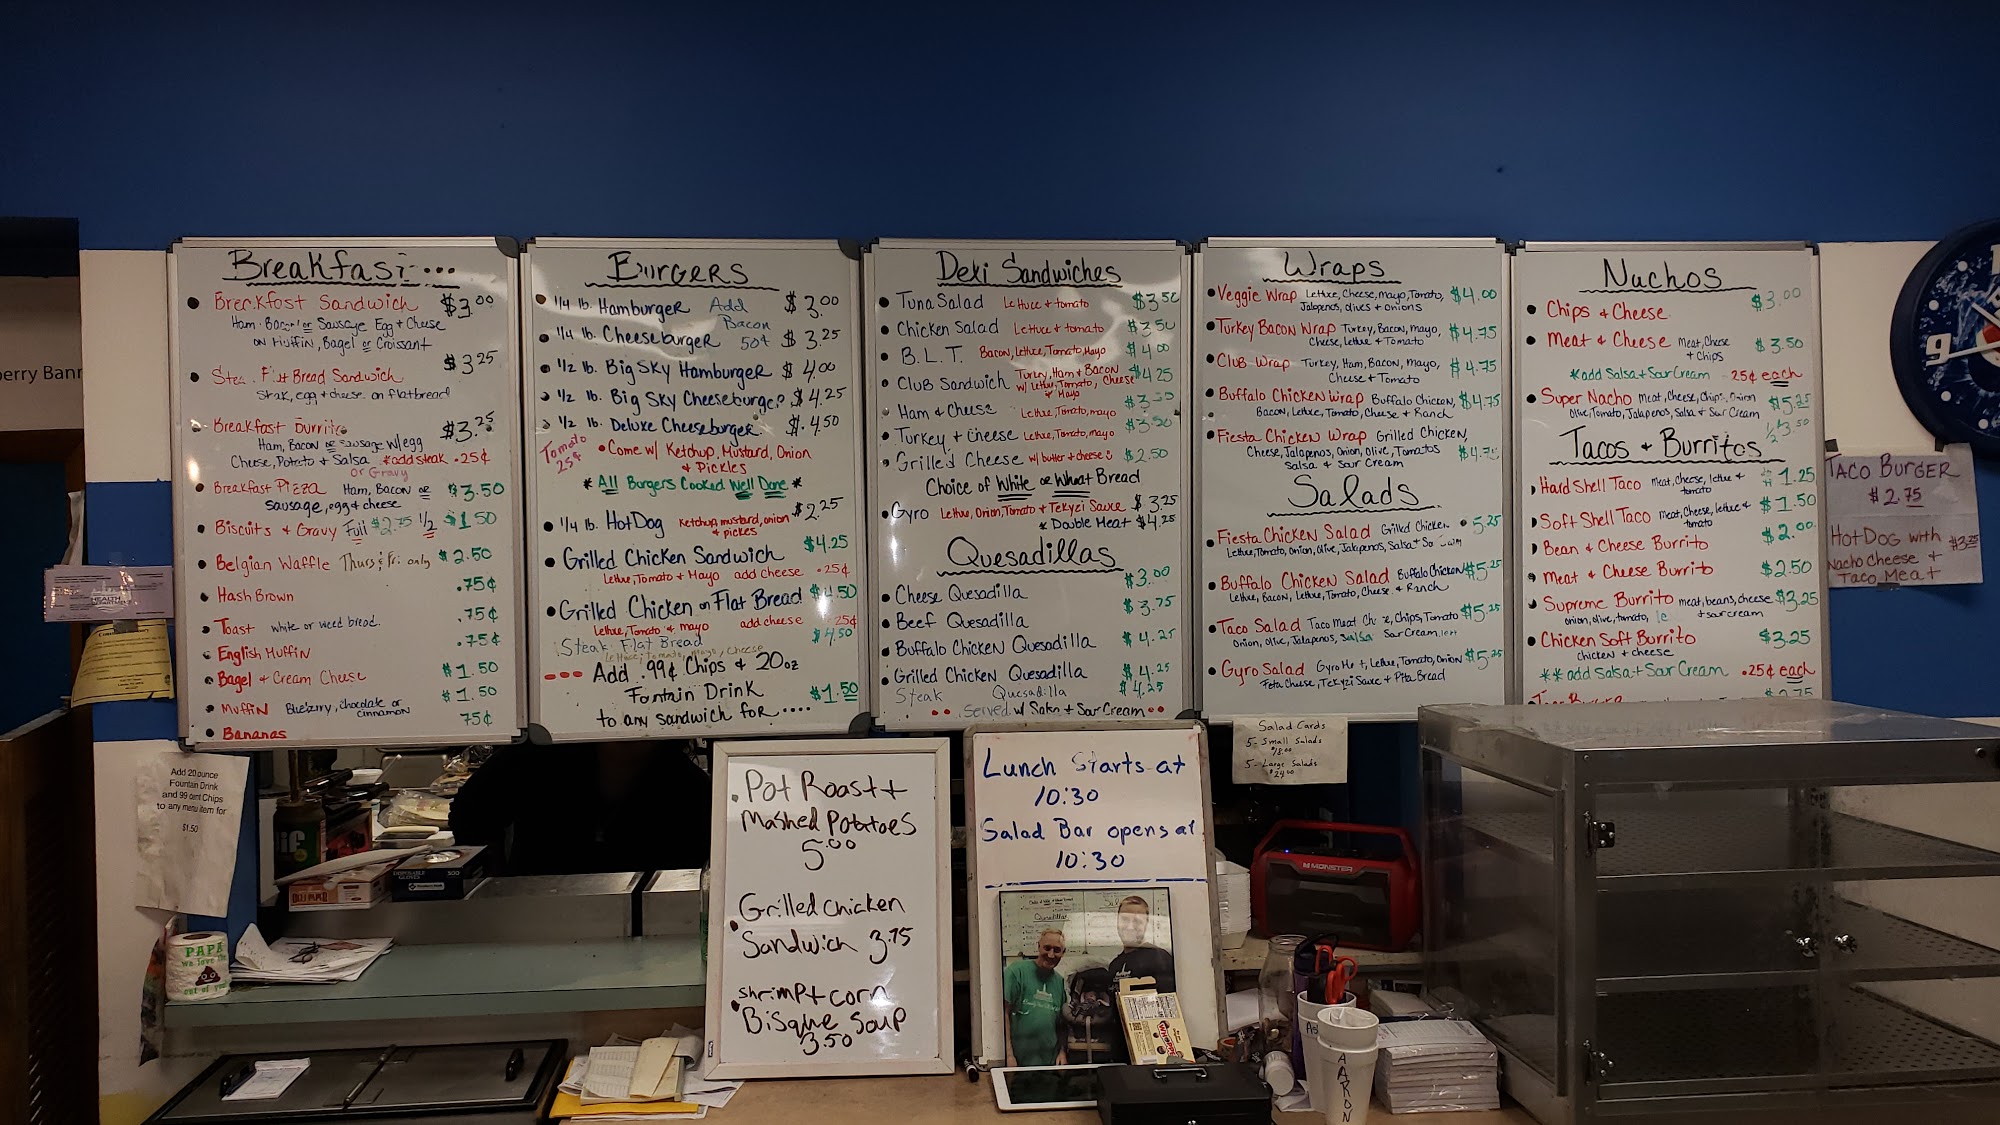 Breakfast...
Breakfast Sandwich $3.00
Ham, Bacon or Sausage Egg & Cheese
on Muffin, Bagel or Croissant
$3.25
Flat Bread Sandwich
Steak, egg & cheese on flatbread
Breakfast Burrito $3.25
Ham, Bacon or Sausage w/egg
Cheese, Potato & Salsa *add steak .25¢
or Gravy
Breakfast Pizza Ham, Bacon or $3.50
Sausage, egg & cheese
Biscuits & Gravy Full $2.75 1/2 $1.50
Belgian Waffle Thurs & Fri only $2.50
Hash Brown .75¢
Toast white or bread .75¢
English Muffin .75¢
Bagel & Cream Cheese $1.50
Muffin Blueberry, chocolate or $1.50
cinnamon
Bananas 75¢
Burgers
1/4 lb. Hamburger Add $3.00
Bacon
1/4 lb. Cheeseburger 50¢ $3.25
1/2 lb. Big Sky Hamburger $4.00
1/2 lb. Big Sky Cheeseburger $4.25
1/2 lb. Deluxe Cheeseburger $4.50
Tomato
25¢
Come w/ Ketchup, Mustard, Onion
& Pickles
* All Burgers Cooked Well Done *
1/4 lb. HotDog Ketchup, mustard, onion $2.25
& pickles
Grilled Chicken Sandwich $4.25
Lettuce, Tomato & Mayo add cheese .25¢
Grilled Chicken on Flat Bread $4.50
Lettuce, Tomato & mayo add cheese .25¢
Steak Flat Bread $4.50
Lettuce, Tomato, Mayo, Cheese
Add .99¢ Chips & 20oz
Fountain Drink
to any sandwich for .... $1.50
Deli Sandwiches
Tuna Salad Lettuce & tomato $3.50
Chicken Salad Lettuce & tomato $3.50
B.L.T. Bacon, Lettuce, Tomato, Mayo $4.00
Club Sandwich Turkey, Ham & Bacon $4.25
w/ Lettuce, Tomato, Cheese
& Mayo
Ham & Cheese Lettuce, Tomato, mayo $3.50
Turkey & Cheese Lettuce, Tomato, mayo $3.50
Grilled Cheese w/ butter & cheese $2.50
Choice of White or Wheat Bread
Gyro Lettuce, Onion, Tomato & Tekyzi Sauce $3.25
* Double Meat $4.25
Quesadillas
Cheese Quesadilla $3.00
Beef Quesadilla $3.75
Buffalo Chicken Quesadilla $4.25
Grilled Chicken Quesadilla $4.25
Steak Quesadilla $4.25
Served w/ Salsa & Sour Cream
Wraps
Veggie Wrap Lettuce, Cheese, mayo, Tomato, $4.00
Jalapenos, olives & onions
Turkey Bacon Wrap Turkey, Bacon, mayo, $4.75
Cheese, lettuce & Tomato
Club Wrap Turkey, Ham, Bacon, mayo, $4.75
Cheese & Tomato
Buffalo Chicken Wrap Buffalo Chicken, $4.75
Bacon, Lettuce, Tomato, Cheese & Ranch
Fiesta Chicken Wrap Grilled Chicken,
Cheese, Jalapenos, Onion, Olive, Tomatos $4.75
Salsa & Sour Cream
Salads
Fiesta Chicken Salad Grilled Chicken 5.25
Lettuce, Tomato, Onion, Olive, Jalapenos, Salsa &
Buffalo Chicken Salad Buffalo Chicken $5.25
Lettuce, Bacon, Lettuce, Tomato, Cheese & Ranch
Taco Salad Taco Meat Chips, Tomato $5.25
Onion, olive, Jalapenos, Salsa Sour Cream
Gyro Salad Gyro Lettuce, Tomato, Onion $5.25
Feta Cheese, Tekyzi Sauce & Pita Bread
Nachos
Chips & Cheese $3.00
Meat & Cheese Meat, Cheese $3.50
& Chips
*add Salsa & Sour Cream .25¢ each
Super Nacho Meat, Cheese, Chips, Onion $5.25
Olive, Tomato, Jalapenos, Salsa & Sour Cream
1/2 $3.50
Tacos & Burritos
Hard Shell Taco Meat, Cheese, lettuce & $1.25
tomato
Soft Shell Taco Meat, Cheese, lettuce & $1.50
tomato
Bean & Cheese Burrito $2.00
Meat & Cheese Burrito $2.50
Supreme Burrito meat, beans, cheese $3.25
onion, olive, tomato, & sour cream
Chicken Soft Burrito $3.25
chicken & cheese
** add Salsa & Sour Cream .25¢ each
Taco Burger
Taco Burger
$2.75
HotDog with $3.25
Nacho Cheese &
Taco Meat
erry Bann
9
HEALTH
Add 20 ounce
Fountain Drink
and 99 cent Chips
to any menu item for
$1.50
Salad Cards
5 - Small Salads
$18.00
5 - Large Salads
$24.00
Pot Roast +
Mashed Potatoes
5.00
Grilled chicken
Sandwich 3.75
Shrimp + corn
Bisque Soup
3.50
Lunch Starts at
10:30
Salad Bar opens at
10:30
Jif
300
MONSTER
PAPA
we love the
out of you
AARON